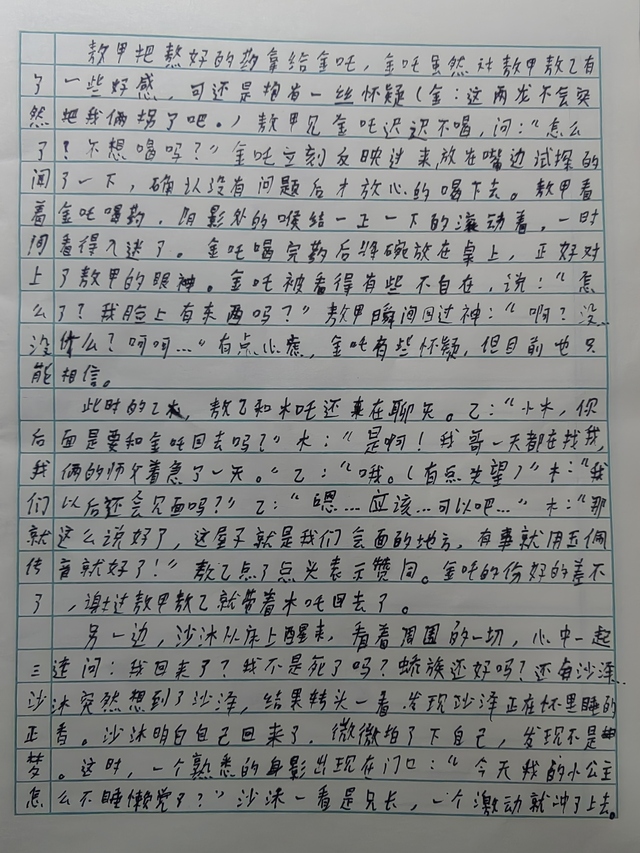 敖甲把熬好的药拿给金吒，金吒虽然对敖甲敖乙有
了一些好感，可还是抱有一丝怀疑（金：这两龙不会突
然把我俩拐了吧。）敖甲见金吒迟迟不喝，问：“怎么
了？不想喝吗？”金吒立刻反映过来，放在嘴边试探的
闻了一下，确认没有问题后才放心的喝下去。敖甲看
着金吒喝药，阴影处的喉结一上一下的滚动着，一时
间看得入迷了。金吒喝完药后将碗放在桌上，正好对
上了敖甲的眼神。金吒被看得有些不自在，说：“怎
么了？我脸上有东西吗？”敖甲瞬间回过神：“啊？没…
没什么？呵呵…”有点心虚，金吒有些怀疑，但目前也只
能相信。
此时的乙木，敖乙和木吒还耒在聊天。乙：“小木，你
后面是要和金吒回去吗？”木：“是啊！我哥一天都在找我，
我俩的师父着急了一天。”乙：“哦。（有点失望）”木：“我
们以后还会见面吗？”乙：“嗯…应该…可以吧…”木：“那
就这么说好了，这屋子就是我们会面的地方，有事就用玉佩
传音就好了！”敖乙点了点头表示赞同。金吒的伤好的差不
了，谢过敖甲敖乙就带着木吒回去了。
另一边，沙沐从床上醒来，看着周围的一切，心中一起
三连问：我回来了？我不是死了吗？蛟族还好吗？还有沙泽…
沙沐突然想到了沙泽，结果转头一看，发现沙泽正在怀里睡的
正香。沙沐明白自己回来了，微微拍了下自己，发现不是
梦。这时，一个熟悉的身影出现在门口：“今天我的小公主
怎么不睡懒觉了？”沙沐一看是兄长，一个激动就冲了上去。